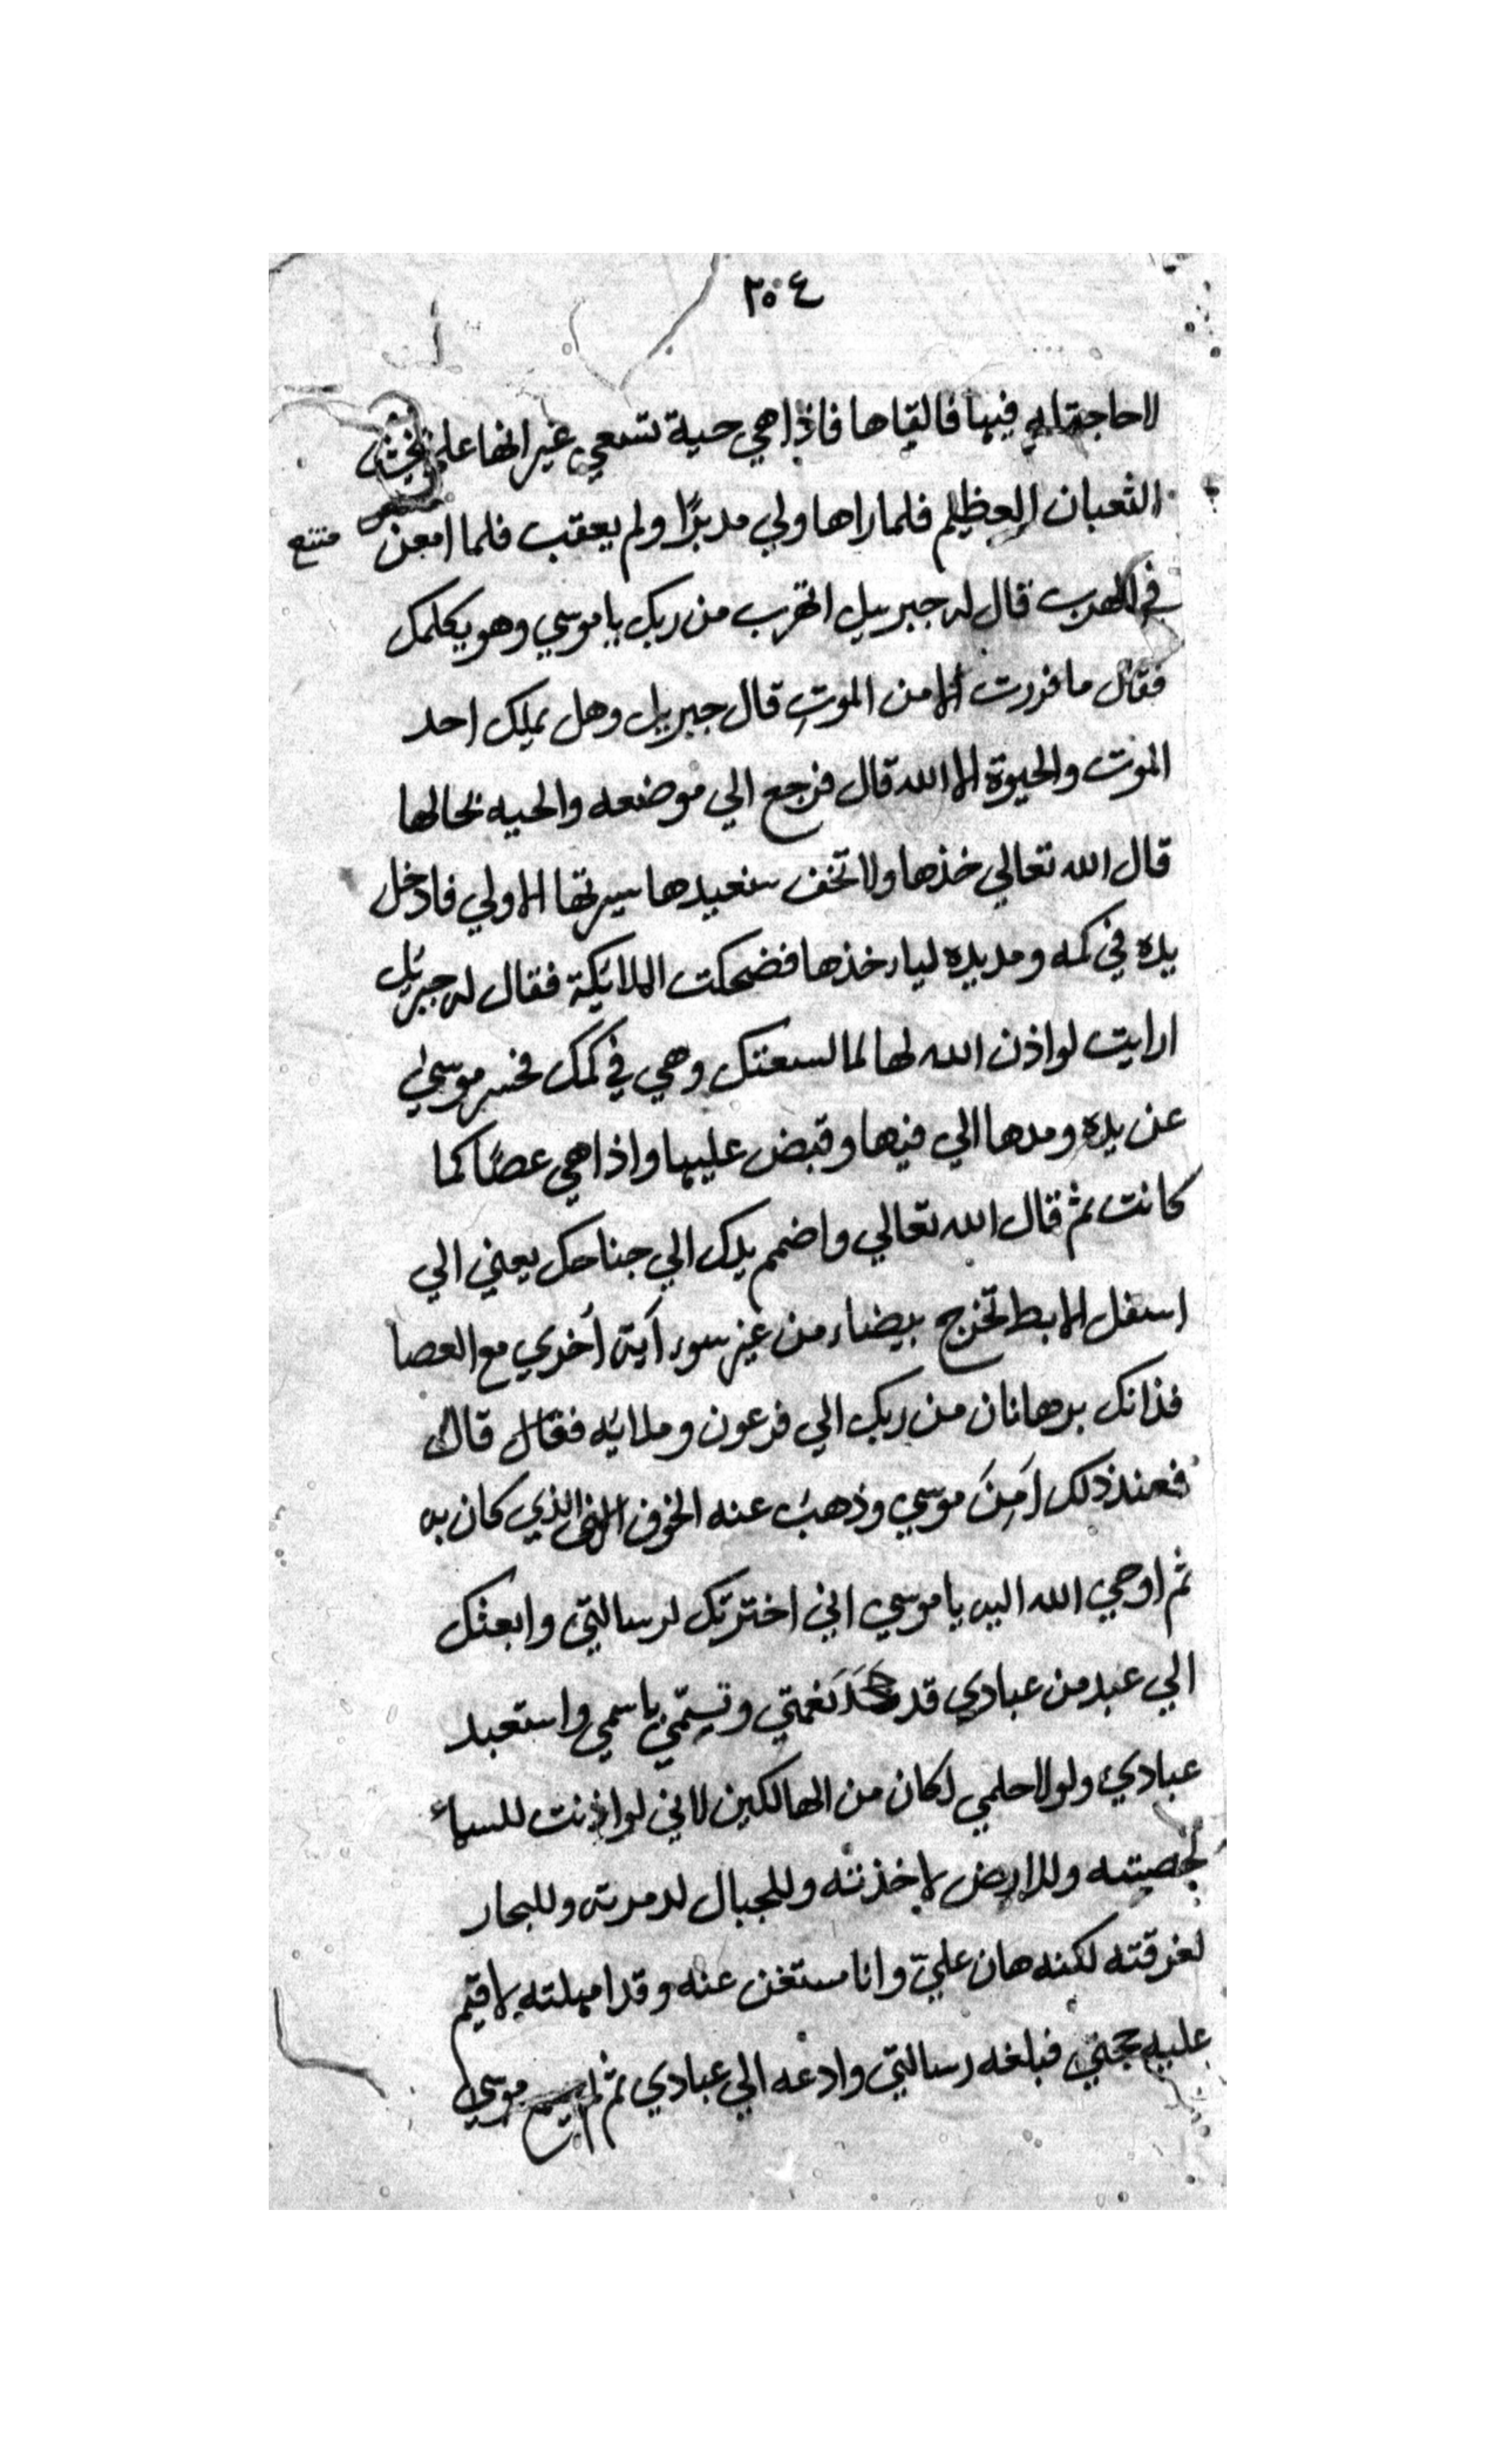 ٢٠٤
لا حاجة له فيها فالقاها فاذا هي حية تسعي غير انها علي
الثعبان العظيم فلما راها ولي مدبرًا ولم يعقب فلما امعن
في الهرب قال له جبريل اتهرب من ربك يا موسي وهو يكلمك
فقال ما فررت الا من الموت قال جبريل وهل يملك احد
الموت والحيوة الا الله قال فرجع الي موضعه والحيه بحالها
قال الله تعالي خذها ولا تخف سنعيدها سيرتها الاولي فادخل
يده في كمه ومد يده لياخذها فضحكت الملائكة فقال له جبريل
ارايت لو اذن الله لها لما لسعتك وهي في كمك فحسر موسي
عن يده ومدها الي فيها وقبض عليها واذا هي عصًا كما
كانت ثم قال الله تعالي واضمم يدك الي جناحك يعني الي
اسفل الابط تخرج بيضاء من غير سوء آية أخري مع العصا
فذانك برهانان من ربك الي فرعون وملائه فقال قال
فعند ذلك اَمِنَ موسي وذهب عنه الخوف الذي كان به
ثم اوحي الله اليه يا موسي اني اخترتك لرسالتي وابعثك
الي عبد من عبادي قد جحَدَ نعمتي وتسمّي باسمي واستعبد
عبادي ولولا حلمي لكان من الهالكين لاني لو اذنت للسماء
لحصبته وللارض لاخذته وللجبال لدمرته وللبحار
لغرقته لكنه هان عليّ وانا مستغن عنه وقد امهلته لاقيم
عليه حجتي فبلغه رسالتي وادعه الي عبادي ثم موسي